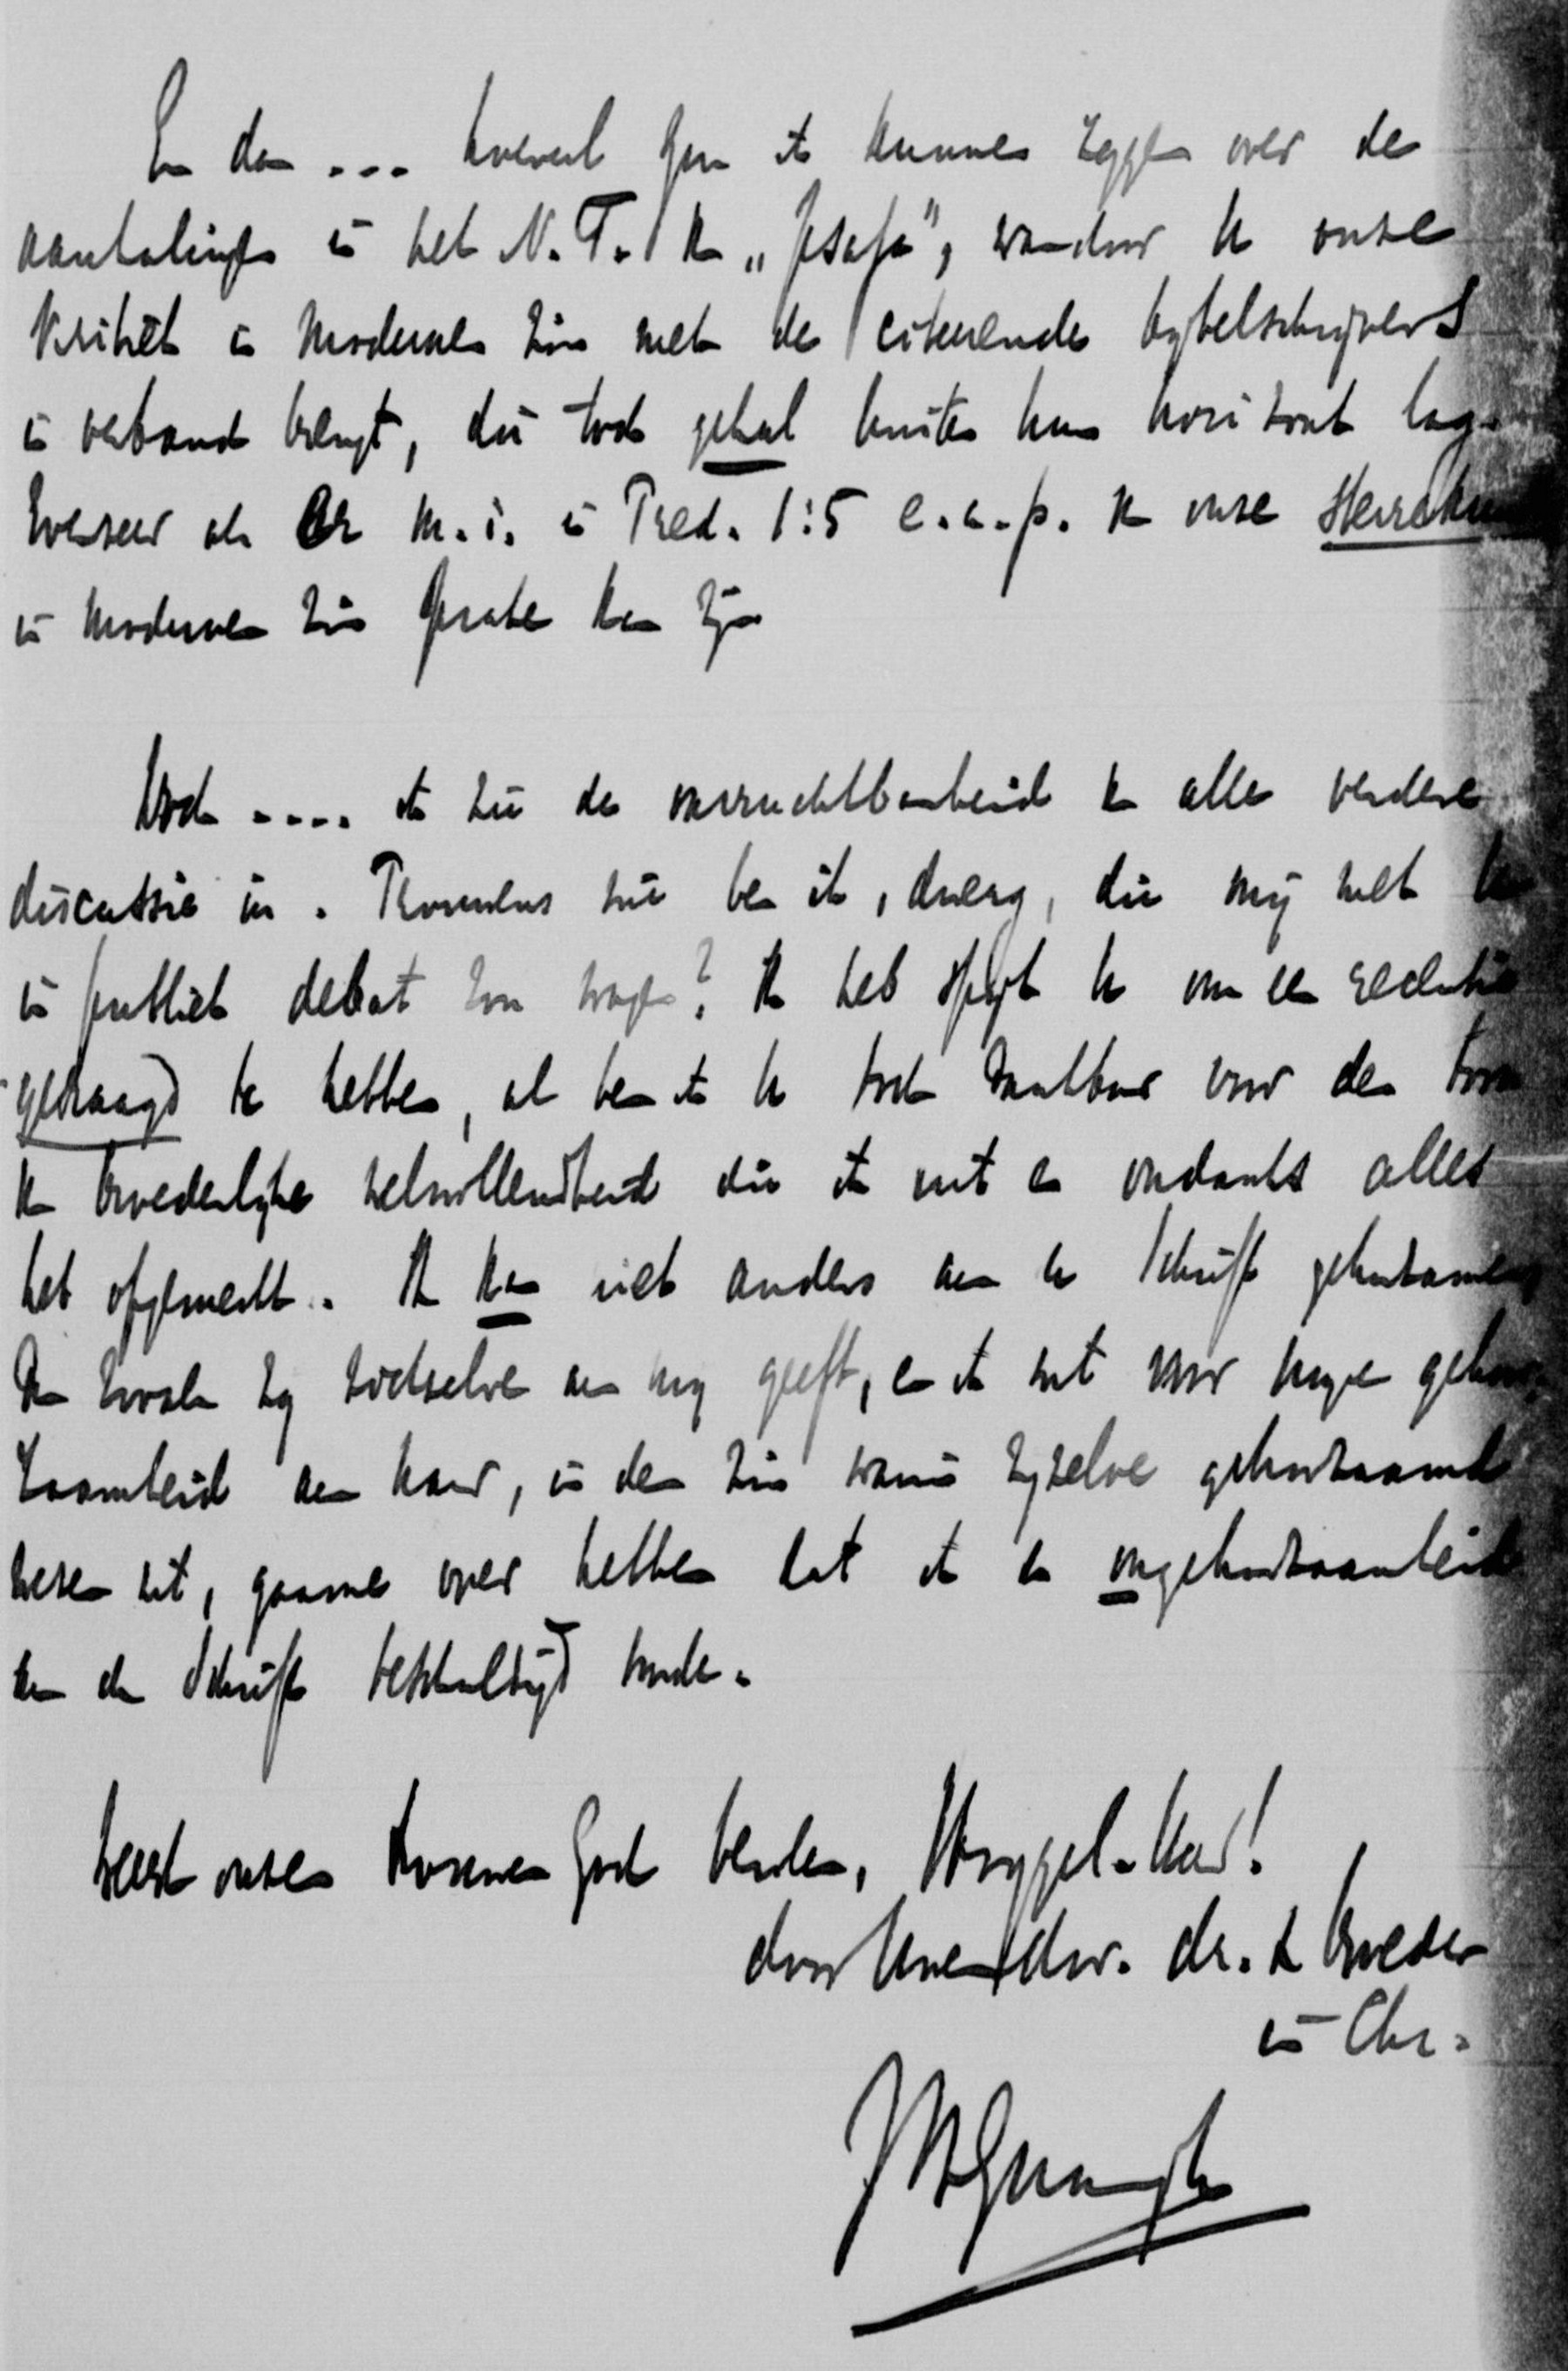 En dan ... hoeveel zou ik kunnen zeggen over de
aanhalingen in het N.T. van „Jesaja", waardoor U onze
kritiek in modernen zin met de citeerende bybelschrijvers
in verband brengt, die toch geheel buiten hun horizont lag.
Evenzeer als er m.i. in Pred. 1:5 e.a.p. van onze sterrekun
in modernen zin sprake kan zijn
Doch .... ik zie de onvruchtbaarheid van alle verdere
discussie in. Trouwens wie ben ik, dwerg, die mij met U
in publiek debat zou wagen? Ik heb spijt U om een redactie
gevraagd te hebben, al ben ik U toch dankbaar voor den toon
van broederlyke welwillendheid die ik uit en ondanks alles
heb opgemerkt. Ik kan niet anders aan de Schrift gehoorzamen
dan zooals zy zichzelve aan my geeft, en ik wil voor myn gehoor-
zaamheid aan haar, in den zin waarin zyzelve gehoorzaamd
wezen wil, gaarne over hebben dat ik van ongehoorzaamheid
aan de Schrift beschuldigd worde.
Weest onzen trouwen God bevolen, Hooggel. Heer!
door Uwen dw. dr. & broeder
in Chr.